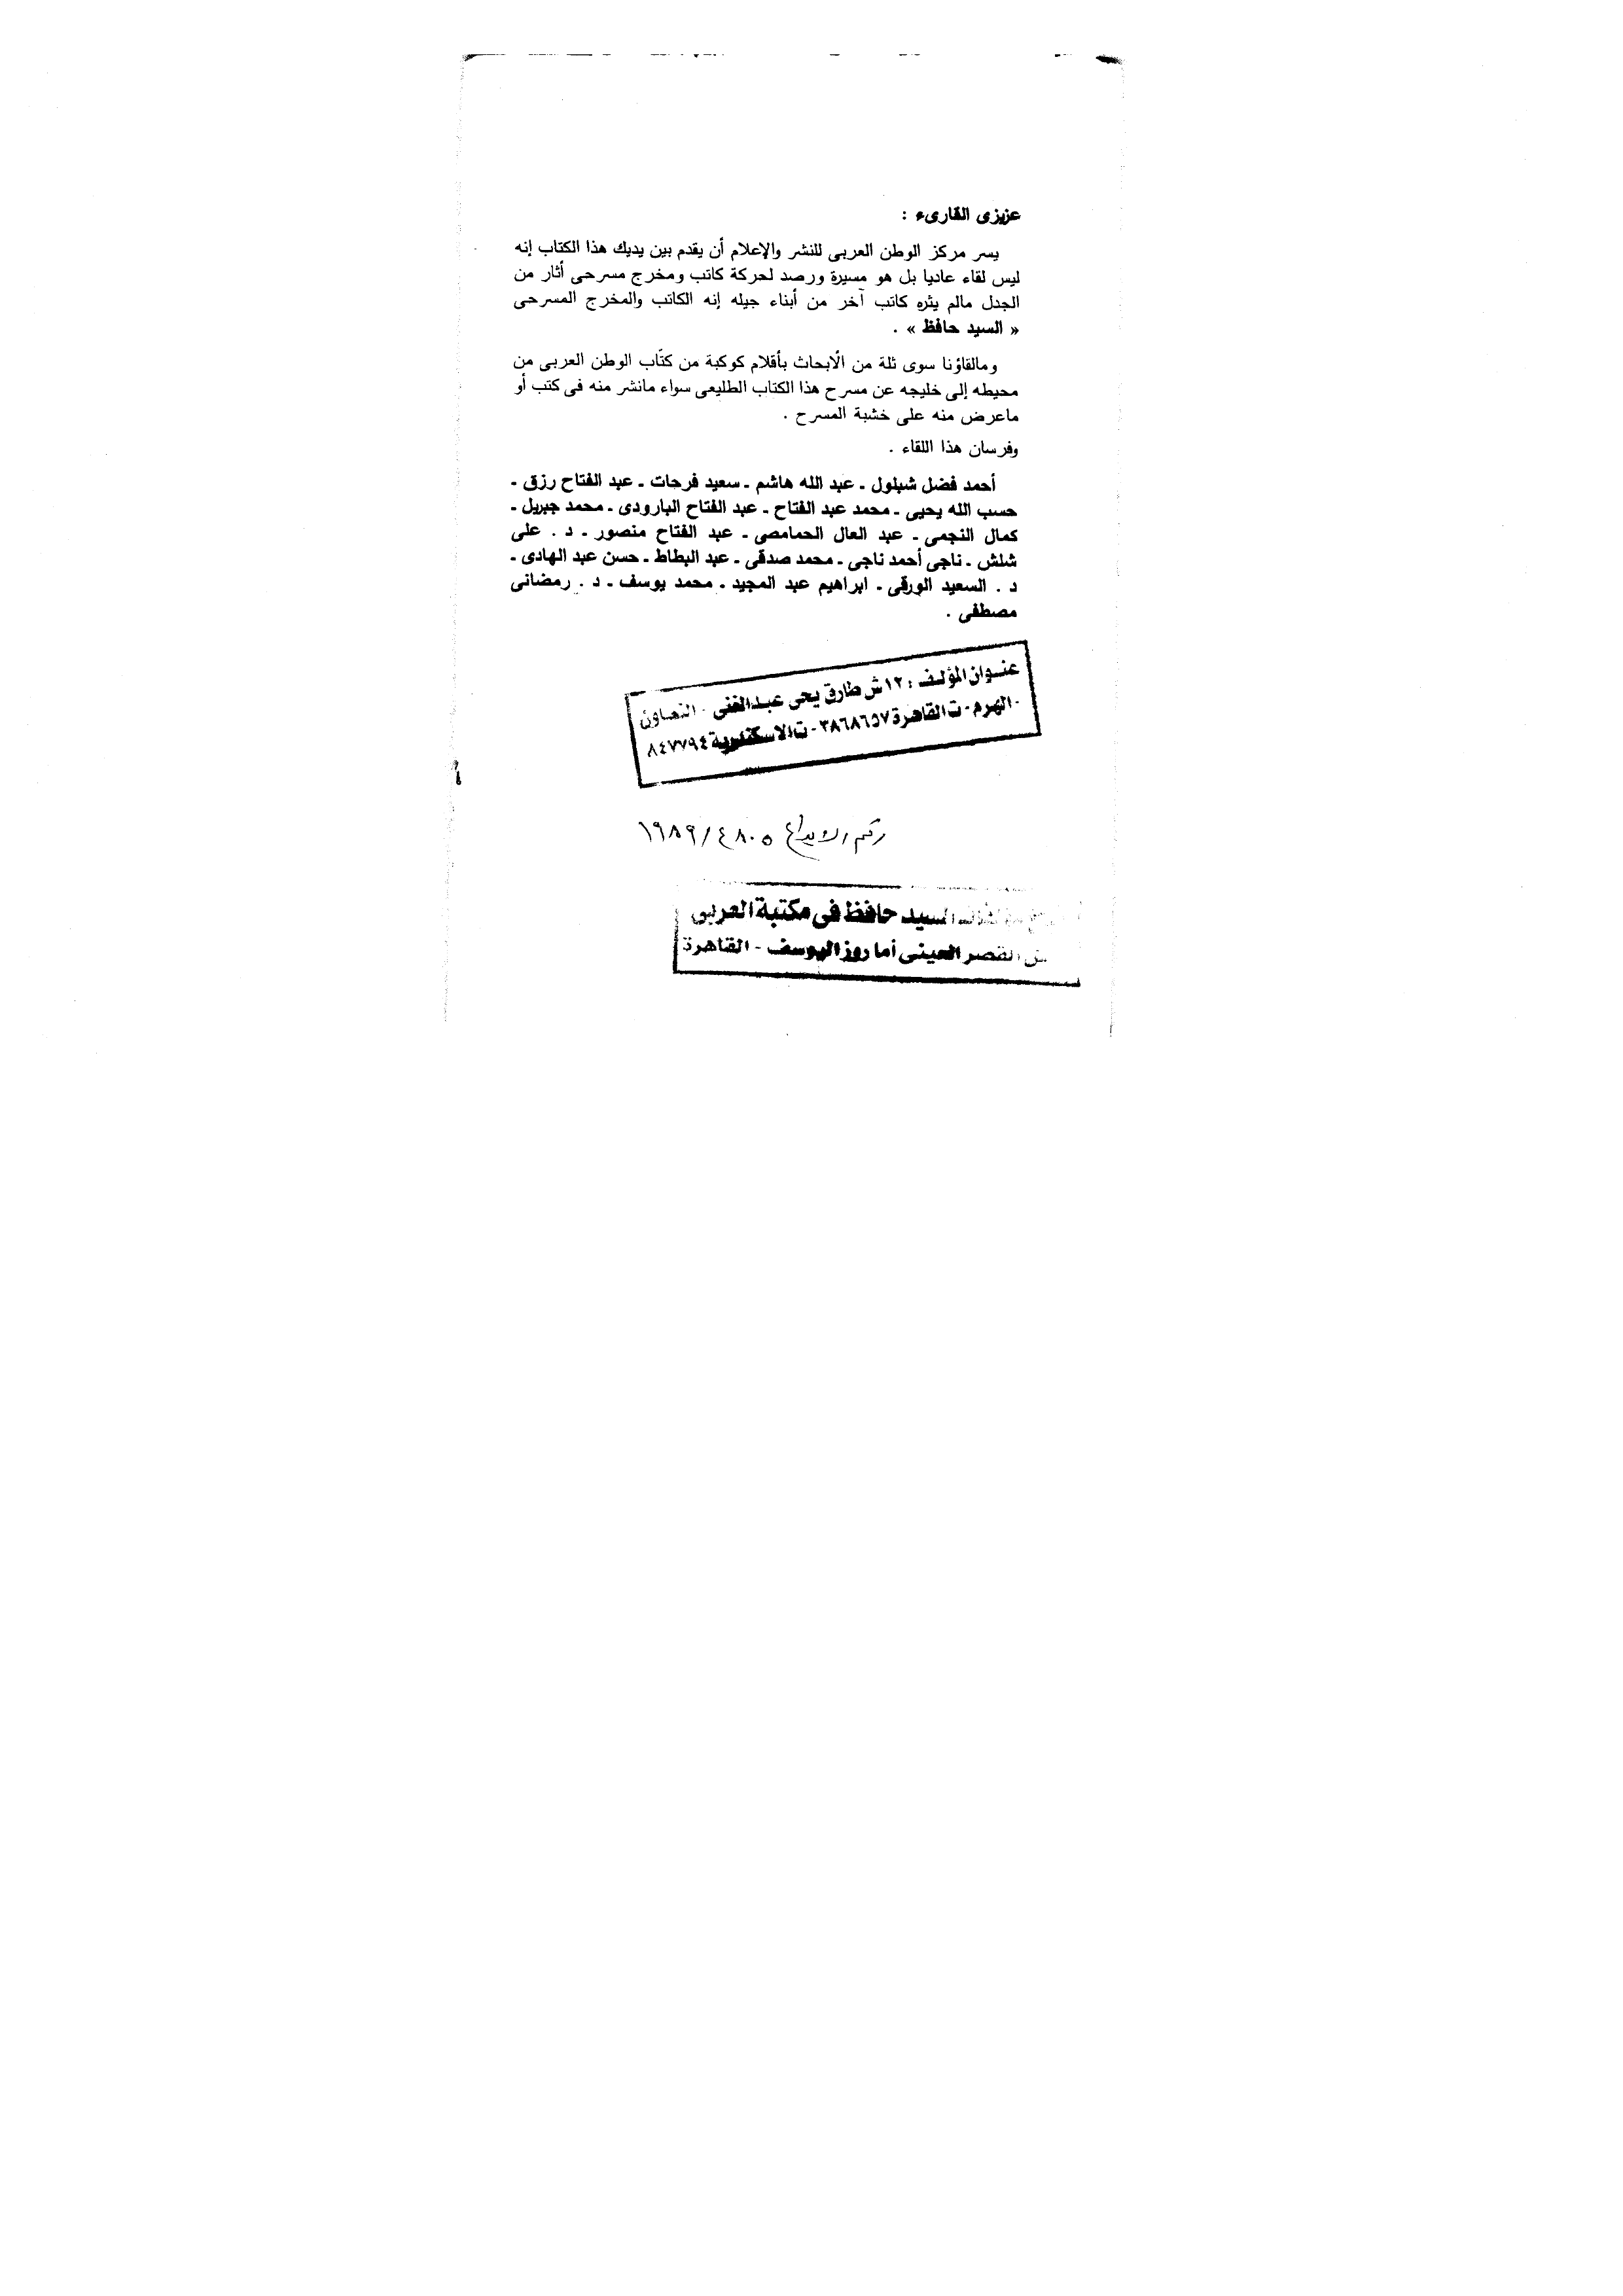 عزيزى القارىء :
يسر مركز الوطن العربى للنشر والإعلام أن يقدم بين يديك هذا الكتاب إنه
ليس لقاء عاديا بل هو مسيرة ورصد لحركة كاتب ومخرج مسرحى أثار من
الجدل مالم يثره كاتب آخر من أبناء جيله إنه الكاتب والمخرج المسرحى
« السيد حافظ » .
ومالقاؤنا سوى ثلة من الأبحاث بأقلام كوكبة من كتّاب الوطن العربى من
محيطه إلى خليجه عن مسرح هذا الكتاب الطليعى سواء مانشر منه فى كتب أو
ماعرض منه على خشبة المسرح .
وفرسان هذا اللقاء .
أحمد فضل شبلول ـ عبد الله هاشم ـ سعيد فرحات ـ عبد الفتاح رزق ـ
حسب الله يحيى ـ محمد عبد الفتاح ـ عبد الفتاح البارودى ـ محمد جبريل ـ
كمال النجمى ـ عبد العال الحمامصى ـ عبد الفتاح منصور ـ د . على
شلش ـ ناجى أحمد ناجى ـ محمد صدقى ـ عبد البطاط ـ حسن عبد الهادى ـ
د . السعيد الورقى ـ ابراهيم عبد المجيد ـ محمد يوسف ـ د . رمضانى
مصطفى .
عنـوان المؤلف : ١٢ ش طارق يحى عبد الغنى - التعاون
- الهرم - ت القاهرة ٣٨٦٨٦٥٧ - ت الاسكندرية ٨٤٧٧٩٤
رقم الايداع ٤٨٠٥/١٩٨٩
السيد حافظ فى مكتبة العربى
ش القصر العينى أما روز اليوسف - القاهرة